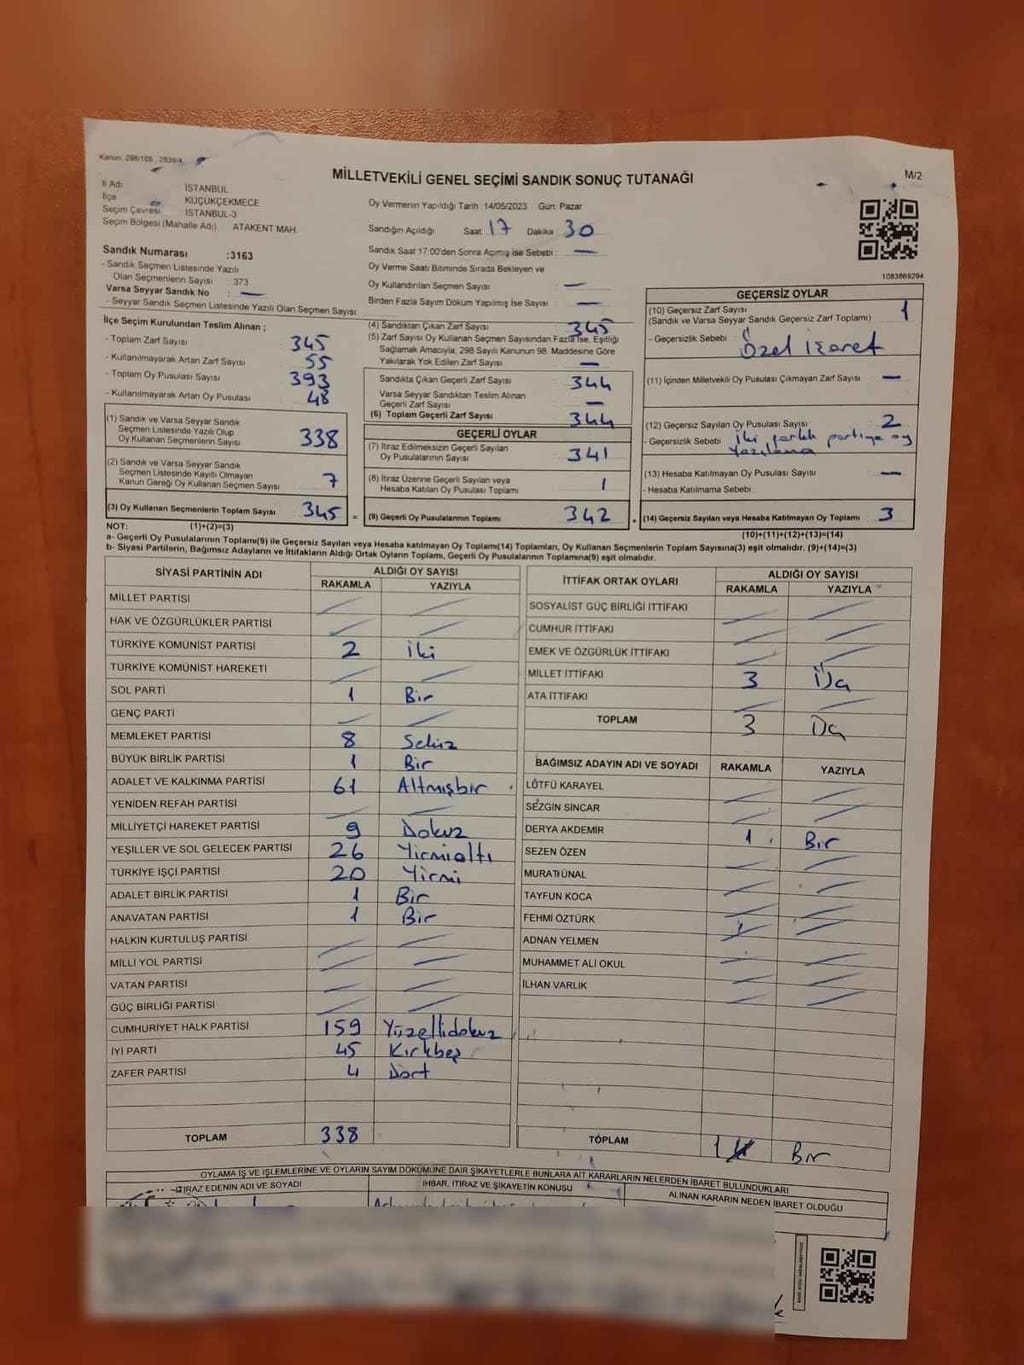 Kanun, 298/105 , 2839/4
MİLLETVEKİLİ GENEL SEÇİMİ SANDIK SONUÇ TUTANAĞI
M/2
İl Adı İSTANBUL
İlçe KÜÇÜKÇEKMECE
Seçim Çevresi İSTANBUL-3
Seçim Bölgesi (Mahalle Adı) ATAKENT MAH.
Oy Vermenin Yapıldığı Tarih :14/05/2023 Gün: Pazar
Sandığın Açıldığı Saat 17 Dakika 30
Sandık Saat 17.00'den Sonra Açımış İse Sebebi —
Oy Verme Saati Bitiminde Sırada Bekleyen ve
Oy Kullandırılan Seçmen Sayısı —
Birden Fazla Sayım Döküm Yapılmış İse Sayısı —
1083869294
Sandık Numarası :3163
- Sandık Seçmen Listesinde Yazılı
Olan Seçmenlerin Sayısı : 373
Varsa Seyyar Sandık No : —
- Seyyar Sandık Seçmen Listesinde Yazılı Olan Seçmen Sayısı:
İlçe Seçim Kurulundan Teslim Alınan ;
- Toplam Zarf Sayısı 345
- Kullanılmayarak Artan Zarf Sayısı 55
- Toplam Oy Pusulası Sayısı 393
- Kullanılmayarak Artan Oy Pusulası 48
(1) Sandık ve Varsa Seyyar Sandık
Seçmen Listesinde Yazılı Olup
Oy Kullanan Seçmenlerin Sayısı 338
(2) Sandık ve Varsa Seyyar Sandık
Seçmen Listesinde Kayıtlı Olmayan
Kanun Gereği Oy Kullanan Seçmen Sayısı 7
(3) Oy Kullanan Seçmenlerin Toplam Sayısı 345
(4) Sandıktan Çıkan Zarf Sayısı 345
(5) Zarf Sayısı Oy Kullanan Seçmen Sayısından Fazla İse, Eşitliği
Sağlamak Amacıyla; 298 Sayılı Kanunun 98. Maddesine Göre
Yakılarak Yok Edilen Zarf Sayısı —
Sandıkta Çıkan Geçerli Zarf Sayısı 344
Varsa Seyyar Sandıktan Teslim Alınan
Geçerli Zarf Sayısı —
(6) Toplam Geçerli Zarf Sayısı 344
GEÇERLİ OYLAR
(7) İtiraz Edilmeksizin Geçerli Sayılan
Oy Pusulalarının Sayısı 341
(8) İtiraz Üzerine Geçerli Sayılan veya
Hesaba Katılan Oy Pusulası Toplamı 1
= (9) Geçerli Oy Pusulalarının Toplamı 342
GEÇERSİZ OYLAR
(10) Geçersiz Zarf Sayısı
(Sandık ve Varsa Seyyar Sandık Geçersiz Zarf Toplamı) 1
- Geçersizlik Sebebi Özel işaret
(11) İçinden Milletvekili Oy Pusulası Çıkmayan Zarf Sayısı —
(12) Geçersiz Sayılan Oy Pusulası Sayısı 2
- Geçersizlik Sebebi iki farklı partiye oy
(13) Hesaba Katılmayan Oy Pusulası Sayısı —
- Hesaba Katılmama Sebebi
+ (14) Geçersiz Sayılan veya Hesaba Katılmayan Oy Toplamı 3
NOT: (1)+(2)=(3) (10)+(11)+(12)+(13)=(14)
a- Geçerli Oy Pusulaları Toplamı(9) ile Geçersiz Sayılan veya Hesaba katılmayan Oy Toplamı(14) Toplamları, Oy Kullanan Seçmenlerin Toplam Sayısına(3) eşit olmalıdır. (9)+(14)=(3)
b- Siyasi Partilerin, Bağımsız Adayların ve İttifakların Aldığı Ortak Oyların Toplamı, Geçerli Oy Pusulalarının Toplamına(9) eşit olmalıdır.
SİYASİ PARTİNİN ADI ALDIĞI OY SAYISI
RAKAMLA YAZIYLA
MİLLET PARTİSİ
HAK VE ÖZGÜRLÜKLER PARTİSİ
TÜRKİYE KOMÜNİST PARTİSİ 2 iki
TÜRKİYE KOMÜNİST HAREKETİ
SOL PARTİ 1 Bir
GENÇ PARTİ
MEMLEKET PARTİSİ 8 Sekiz
BÜYÜK BİRLİK PARTİSİ 1 Bir
ADALET VE KALKINMA PARTİSİ 61 Altmışbir
YENİDEN REFAH PARTİSİ
MİLLİYETÇİ HAREKET PARTİSİ 9 Dokuz
YEŞİLLER VE SOL GELECEK PARTİSİ 26 Yirmialtı
TÜRKİYE İŞÇİ PARTİSİ 20 Yirmi
ADALET BİRLİK PARTİSİ 1 Bir
ANAVATAN PARTİSİ 1 Bir
HALKIN KURTULUŞ PARTİSİ
MİLLİ YOL PARTİSİ
VATAN PARTİSİ
GÜÇ BİRLİĞİ PARTİSİ
CUMHURİYET HALK PARTİSİ 159 Yüzellidokuz
İYİ PARTİ 45 Kırkbeş
ZAFER PARTİSİ 4 Dört
TOPLAM 338
İTTİFAK ORTAK OYLARI ALDIĞI OY SAYISI
RAKAMLA YAZIYLA
SOSYALİST GÜÇ BİRLİĞİ İTTİFAKI
CUMHUR İTTİFAKI
EMEK VE ÖZGÜRLÜK İTTİFAKI
MİLLET İTTİFAKI 3 Üç
ATA İTTİFAKI
TOPLAM 3 Üç
BAĞIMSIZ ADAYIN ADI VE SOYADI RAKAMLA YAZIYLA
LÜTFÜ KARAYEL
SEZGİN SİNCAR
DERYA AKDEMİR 1 Bir
SEZEN ÖZEN
MURAT ÜNAL
TAYFUN KOCA
FEHMİ ÖZTÜRK
ADNAN YELMEN
MUHAMMET ALİ OKUL
İLHAN VARLIK
TOPLAM 1 Bir
OYLAMA İŞ VE İŞLEMLERİNE VE OYLARIN SAYIM DÖKÜMÜNE DAİR ŞİKAYETLERLE BUNLARA AİT KARARLARIN NELERDEN İBARET BULUNDUKLARI
İTİRAZ EDENİN ADI VE SOYADI
İHBAR, İTİRAZ VE ŞİKAYETİN KONUSU
ALINAN KARARIN NEDEN İBARET OLDUĞU